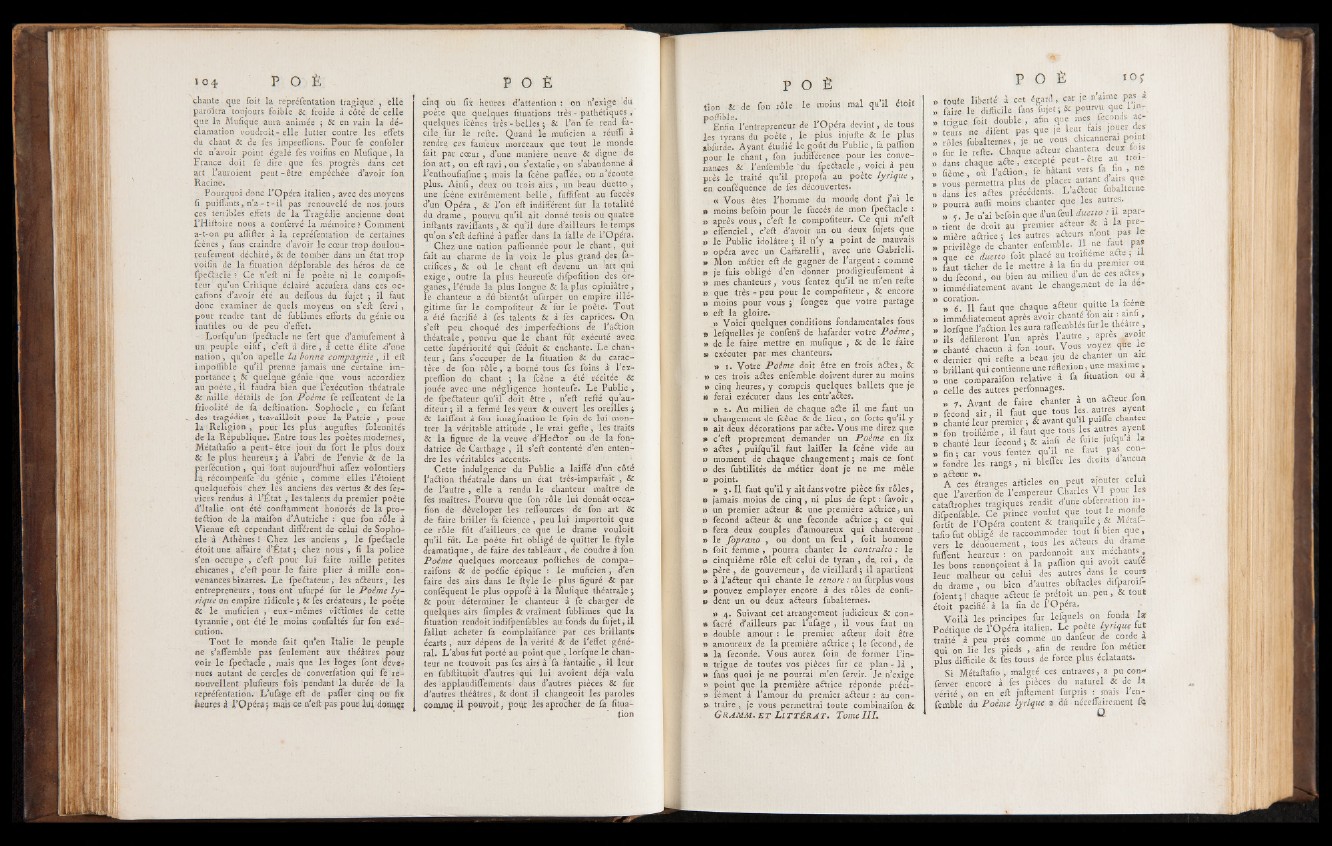 104 P O É
chante que soit la repréſentation tragique , elle
paroîtra toujours foible & froide à côté de celle
que la Muſique aura animée ; & en vain la dé-
clamation voudroit-elle lutter contre les effets
du chant & de ſes impreſſions. Pour ſe conſoler
de n'avoir point égalé ſes voiſins en Muſique, la
France doit ſe dire que ſes progrès dans cet
art l'auroient peut-être empêchée d'avoir ſon
Racine.
Pourquoi donc l'Opéra italien, avec des moyens
ſi puiſſants, n'a-t-il pas renouvelé de nos jours
ces terribles effets de la Tragédie ancienne dont
l'Hiſtoire nous a conſervé la mémoire ? Comment
a-t-on pu aſſiſter à la repréſentation de certaines
ſcènes , ſans craindre d'avoir le cœur trop doulou-
reuſement déchiré, & de tomber dans un état trop
voiſin de la ſituation déplorable des héros de ce
ſpectacle ? Ce n'eſt ni le poète ni le compoſi-
teur qu'un Critique éclairé accuſera dans ces oc-
caſions d'avoir été au deſſous du ſujet ; il faut
donc examiner de quels moyens on s'eſt ſervi ,
pour rendre tant de ſublimes efforts du génie ou
inutiles ou de peu d'effet.
Lorſqu'un ſpectacle ne ſert que d'amuſement à
un peuple oiſif, c'eſt à dire , à cette élite d'une
nation , qu'on apelle la bonne compagnie , il eſt
impoſſible qu'il prenne jamais une certaine im-
portance ; & quelque génie que vous accordiez
au poète, il faudra bien que l'exécution théâtrale
& mille détails de ſon Poème ſe reſſentent de la
frivolité de ſa deſtination. Sophocle , en feſant
des tragédies , travailloit pour la Patrie , pour
la Religion , pour les plus auguſtes ſolennités
de la République. Entre tous les poètes modernes,
Métaſtaſio a peut-être joui du ſort le plus doux
& le plus heureux ; à l'abri de l'envie & de la
perſécution , qui ſont aujourd'hui aſſez volontiers
la récompenſe du génie , comme elles l'étoient
quelquefois chez les anciens des vertus & des ſer-
vices rendus à l'État , les talents du premier poète
d'Italie ont été conſtamment honorés de la pro-
tection de la maiſon d'Autriche : que ſon rôle à
Vienne eſt cependant différent de celui de Sopho-
cle à Athènes ! Chez les anciens , le ſpectacle
étoit une affaire d'État ; chez nous , ſi la police
s'en occupe , c'eſt pour lui faire mille petites
chicanes , c'eſt pour le faire plier à mille con-
venances bizarres. Le ſpectateur, les acteurs, les
entrepreneurs, tous ont uſurpé ſur le Poème ly-
rique un empire ridicule ; & ſes créateurs, le poète
& le muſicien , eux-mêmes victimes de cette
tyrannie , ont été le moins conſultés ſur ſon exé-
cution.
Tout le monde ſait qu'en Italie le peuple
ne s'aſſemble pas ſeulement aux théâtres pour
voir le ſpectacle , mais que les loges ſont deve-
nues autant de cercles de converſation qui ſe re-
nouvellent pluſieurs fois pendant la durée de la
repréſentation. L'uſage eſt de paſſer cinq ou ſix
heures à l'Opéra ; mais ce n'eſt pas pour lui donner
P O É
cinq ou ſix heures d'attention : on n'exige du
poète que quelques ſituations très-pathétiques ,
quelques ſcènes très-belles ; & l'on ſe rend fa-
cile ſur le reſte. Quand le muſicien a réuſſi à
rendre ces fameux morceaux que tout le monde
ſait par cœur , d'une manière neuve & digne de
ſon art , on eſt ravi , on s'extaſie , on s'abandonne à
l'enthouſiaſme ; mais la ſcène paſſée, on n'écoute
plus. Ainſi, deux ou trois airs , un beau duetto ,
une ſcène extrêmement belle , ſuffiſent au ſuccès
d'un Opéra , & l'on eſt indifférent ſur la totalité
du drame , pourvu qu'il ait donné trois ou quatre
inſtants raviſſants , & qu'il dure d'ailleurs le temps
qu'on s'eſt deſtiné à paſſer dans la ſalle de l'Opéra.
Chez une nation paſſionnée pour le chant , qui
fait au charme de la voix le plus grand des ſa-
crifices , & où le chant eſt devenu un art qui
exige, outre la plus heureuſe diſpoſition des or-
ganes, l'étude la plus longue & la plus opiniâtre ,
le chanteur a dû bientôt uſurper un empire illé-
gitime ſur le compoſiteur & ſur le poète. Tout
a été ſacrifié à ſes talents & à ſes caprices. On
s'eſt peu choqué des imperfections de l'action
théâtrale , pourvu que le chant fût exécuté avec
cette ſupériorité qui ſéduit & enchante. Le chan-
teur , ſans s'occuper de la ſituation & du carac-
tère de ſon rôle , a borné tous ſes ſoins à l'ex-
preſſion du chant ; la ſcène a été récitée &
jouée avec une négligence honteuſe. Le Public ,
de ſpectateur qu'il doit être , n'eſt reſté qu'au-
diteur ; il a fermé les yeux & ouvert les oreilles ;
& laiſſant à ſon imagination le ſoin de lui mon-
trer la véritable attitude , le vrai geſte , les traits
& la figure de la veuve d'Hector ou de la fon-
datrice de Carthage , il s'eſt contenté d'en enten-
dre les véritables accents.
Cette indulgence du Public a laiſſé d'un côté
l'action théâtrale dans un état très-imparfait , &
de l'autre , elle a rendu le chanteur maître de
ſes maîtres. Pourvu que ſon rôle lui donnât occa-
ſion de déveloper les reſſources de ſon art &
de faire briller ſa ſcience , peu lui importoit que
ce rôle fût d'ailleurs ce que le drame vouloit
qu'il fût. Le poète fut obligé de quitter le ſtyle
dramatique , de faire des tableaux , de coudre à ſon
Poème quelques morceaux poſtiches de compa-
raiſons & de poéſie épique : le muſicien , d'en
faire des airs dans le ſtyle le plus figuré & par
conſéquent le plus oppoſé à la Muſique théâtrale ;
& pour déterminer le chanteur à ſe charger de
quelques airs ſimples & vraiment ſublimes que la
ſituation rendoit indiſpenſables au fonds du ſujet, il
fallut acheter ſa complaiſance par ces brillants
écarts , aux dépens de la vérité & de l'effet géné-
ral. L'abus fut porté au point que , lorſque le chan-
teur ne trouvoit pas ſes airs à ſa fantaiſie , il leur
en ſubſtituoit d'autres qui lui avoient déja valu
des applaudiſſements dans d'autres pièces & ſur
d'autres théâtres, & dont il changeoit les paroles
comme il pouvoit , pour les aprocher de ſa ſitua-
tion
P O É
tion & de ſon rôle le moins mal qu'il étoit
poſſible.
Enfin l'entrepreneur de l'Opéra devint, de tous
les tyrans du poète , le plus injuſte & le plus
abſurde. Ayant étudié le goût du Public, ſa paſſion
pour le chant, ſon indifférence pour les conve-
nances & l'enſemble du ſpectacle , voici à peu
près le traité qu'il propoſa au poète lyrique ,
en conſéquence de ſes découvertes.
« Vous êtes l'homme du monde dont j'ai le
» moins beſoin pour le ſuccès de mon ſpectacle :
» après vous, c'eſt le compoſiteur. Ce qui m'eſt
» eſſenciel, c'eſt d'avoir un ou deux ſujets que
» le Public idolâtre ; il n'y a point de mauvais
» opéra avec un Caffarelli , avec une Gabrieli.
» Mon métier eſt de gagner de l'argent : comme
» je ſuis obligé d'en donner prodigieuſement à
» mes chanteurs , vous ſentez qu'il ne m'en reſte
» que très-peu pour le compoſiteur, & encore
» moins pour vous ; ſongez que votre partage
» eſt la gloire.
» Voici quelques conditions fondamentales ſous
» leſquelles je conſens de haſarder votre Poème ,
» de le faire mettre en muſique , & de le faire
» exécuter par mes chanteurs.
» 1. Votre Poème doit être en trois actes, &
» ces trois actes enſemble doivent durer au moins
» cinq heures, y compris quelques ballets que je
» ferai exécuter dans les entr'actes.
» 2. Au milieu de chaque acte il me faut un
» changement de ſcène & de lieu , en ſorte qu'il y
» ait deux décorations par acte. Vous me direz que
» c'eſt proprement demander un Poème en ſix
» actes , puiſqu'il faut laiſſer la ſcène vide au
» moment de chaque changement ; mais ce ſont
» des ſubtilités de métier dont je ne me mêle
» point.
» 3. Il faut qu'il y ait dans votre pièce ſix rôles,
» jamais moins de cinq , ni plus de ſept : ſavoir ,
» un premier acteur & une première actrice, un
» ſecond acteur & une ſeconde actrice ; ce qui
» fera deux couples d'amoureux qui chanteront
» le ſoprano , ou dont un ſeul , ſoit homme
» ſoit femme , pourra chanter le contralto : le
» cinquième rôle eſt celui de tyran , de roi , de
» père , de gouverneur, de vieillard ; il apartient
» à l'acteur qui chante le tenore : au ſurplus vous
» pouvez employer encore à des rôles de confi-
» dent un ou deux acteurs ſubalternes.
» 4. Suivant cet arrangement judicieux & con-
» ſacré d'ailleurs par l'uſage , il vous faut un
» double amour : le premier acteur doit être
» amoureux de la première actrice ; le ſecond, de
» la ſeconde. Vous aurez ſoin de former l'in-
» trigue de toutes vos pièces ſur ce plan-là ,
» ſans quoi je ne pourrai m'en ſervir. Je n'exige
» point que la première actrice réponde préci-
» ſément à l'amour du premier acteur : au con-
» traire , je vous permettrai toute combinaiſon &
GRAMM. ET LITTÉRAT. Tome III.
P O É 105
» toute liberté à cet égard, car je n'aime pas à
» faire le difficile ſans ſujet ; & pourvu que l'in-
» trigue ſoit double, afin que mes ſeconds ac-
» teurs ne diſent pas que je leur fais jouer des
» rôles ſubalternes, je ne vous chicannerai point
» ſur le reſte. Chaque acteur chantera deux fois
» dans chaque acte , excepté peut-être au troi-
» ſième , où l'action, ſe hâtant vers ſa fin , ne
» vous permettra plus de placer autant d'airs que
» dans les actes précédents. L'acteur ſubalterne
» pourra auſſi moins chanter que les autres.
» 5. Je n'ai beſoin que d'un ſeul duetto : il apar-
» tient de droit au premier acteur & à la pre-
» mière actrice ; les autres acteurs n'ont pas le
» privilège de chanter enſemble. Il ne faut pas
» que ce duetto ſoit placé au troiſième acte ; il
» faut tâcher de le mettre à la fin du premier ou
» du ſecond, ou bien au milieu d'un de ces actes ,
» immédiatement avant le changement de la dé-
» coration.
» 6. Il faut que chaque acteur quitte la ſcène
» immédiatement après avoir chanté ſon air : ainſi ,
» lorſque l'action les aura raſſemblés ſur le théâtre ,
» ils défileront l'un après l'autre , après avoir
» chanté chacun à ſon tour. Vous voyez que le
» dernier qui reſte a beau jeu de chanter un air
» brillant qui contienne une réflexion, une maxime ,
» une comparaiſon relative à ſa ſituation ou à
» celle des autres perſonnages.
» 7. Avant de faire chanter à un acteur ſon
» ſecond air, il faut que tous les autres ayent
» chanté leur premier ; & avant qu'il puiſſe chanter
» ſon troiſième , il faut que tous les autres ayent
» chanté leur ſecond ; & ainſi de ſuite juſqu'à la
» fin ; car vous ſentez qu'il ne faut pas con-
» fondre les rangs , ni bleſſer les droits d'aucun
» acteur ».
A ces étranges articles on peut ajouter celui
que l'averſion de l'empereur Charles VI pour les
cataſtrophes tragiques rendit d'une obſervation in-
diſpenſable. Ce prince voulut que tout le monde
ſortît de l'Opéra content & tranquile ; & Métaſ-
taſio fut obligé de raccommoder tout ſi bien que ,
vers le dénouement , tous les acteurs du drame
fuſſent heureux : on pardonnoit aux méchants ,
les bons renonçoient à la paſſion qui avoit cauſé
leur malheur ou celui des autres dans le cours
du drame , ou bien d'autres obſtacles diſparoiſ-
ſoient ; chaque acteur ſe prêtoit un peu , & tout
étoit pacifié à la fin de l'Opéra.
Voilà les principes ſur leſquels on fonda la
Poétique de l'Opéra italien. Le poète lyrique fut
traité à peu près comme un danſeur de corde à
qui on lie les pieds , afin de rendre ſon métier
plus difficile & ſes tours de force plus éclatants.
Si Métaſtaſio , malgré ces entraves, a pu con-
ſerver encore à ſes pièces du naturel & de la
vérité , on en eſt juſtement ſurpris : mais l'en-
ſemble du Poème lyrique a dû néceſſairement ſe
O